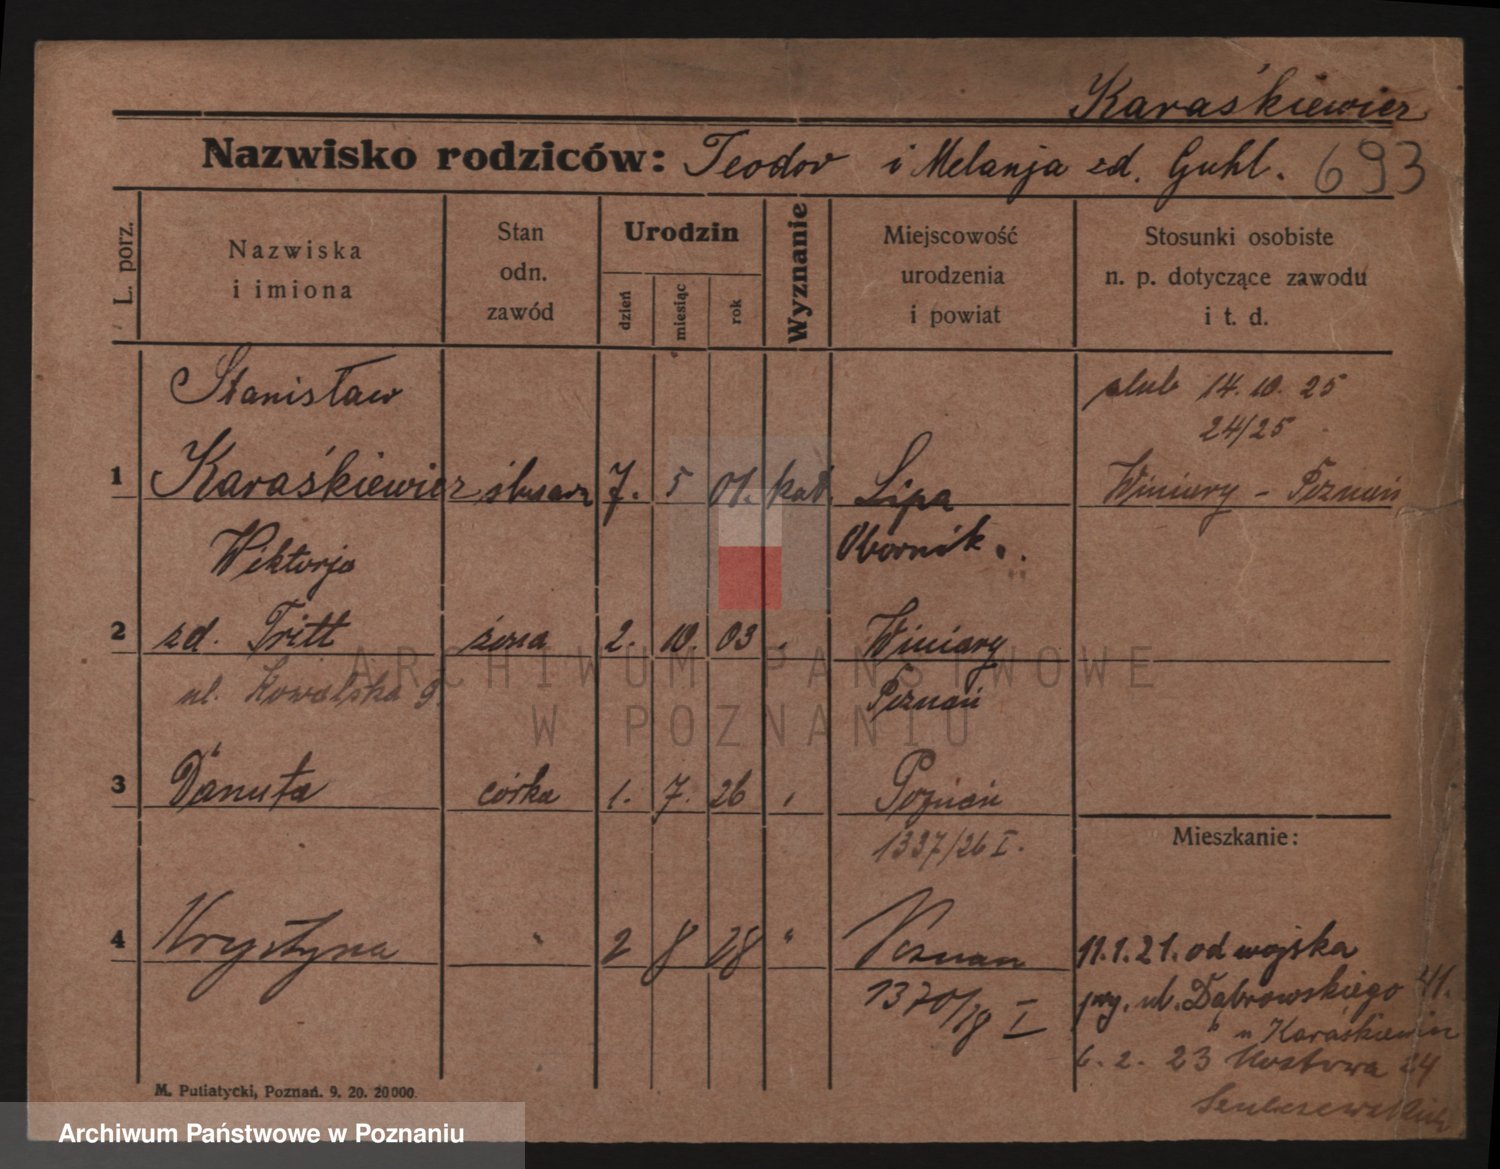 Karaśkiewicz
Nazwisko rodziców: Teodor i Melanja zd. Guhl. 693
L. porz.
Nazwiska i imiona
Stan odn. zawód
Urodzin
dzień miesiąc rok
Wyznanie
Miejscowość urodzenia i powiat
Stosunki osobiste n. p. dotyczące zawodu i t. d.
Stanisław
ślub 14. 10. 25
24/25
1 Karaśkiewicz ślusarz 7. 5 01. kat. Lipa
Winiary - Poznań
Wiktorja Obornik.
2 zd. Tritt żona 2. 10. 03 Winiary
ul. Kowalska 9. Poznań
3 Danuta córka 1. 7. 26 Poznań
1337/26 I.
Mieszkanie:
4 Krystyna " 2 8 28 " Poznan
1370/28 I
11.1.21. od wojska
ul. Dąbrowskiego 41.
" Karaśkiewicz
6. 2. 23 Kostowa 24
M. Putiatycki, Poznań. 9. 20. 20000.
ARCHIWUM PAŃSTWOWE
W POZNANIU
Archiwum Państwowe w Poznaniu